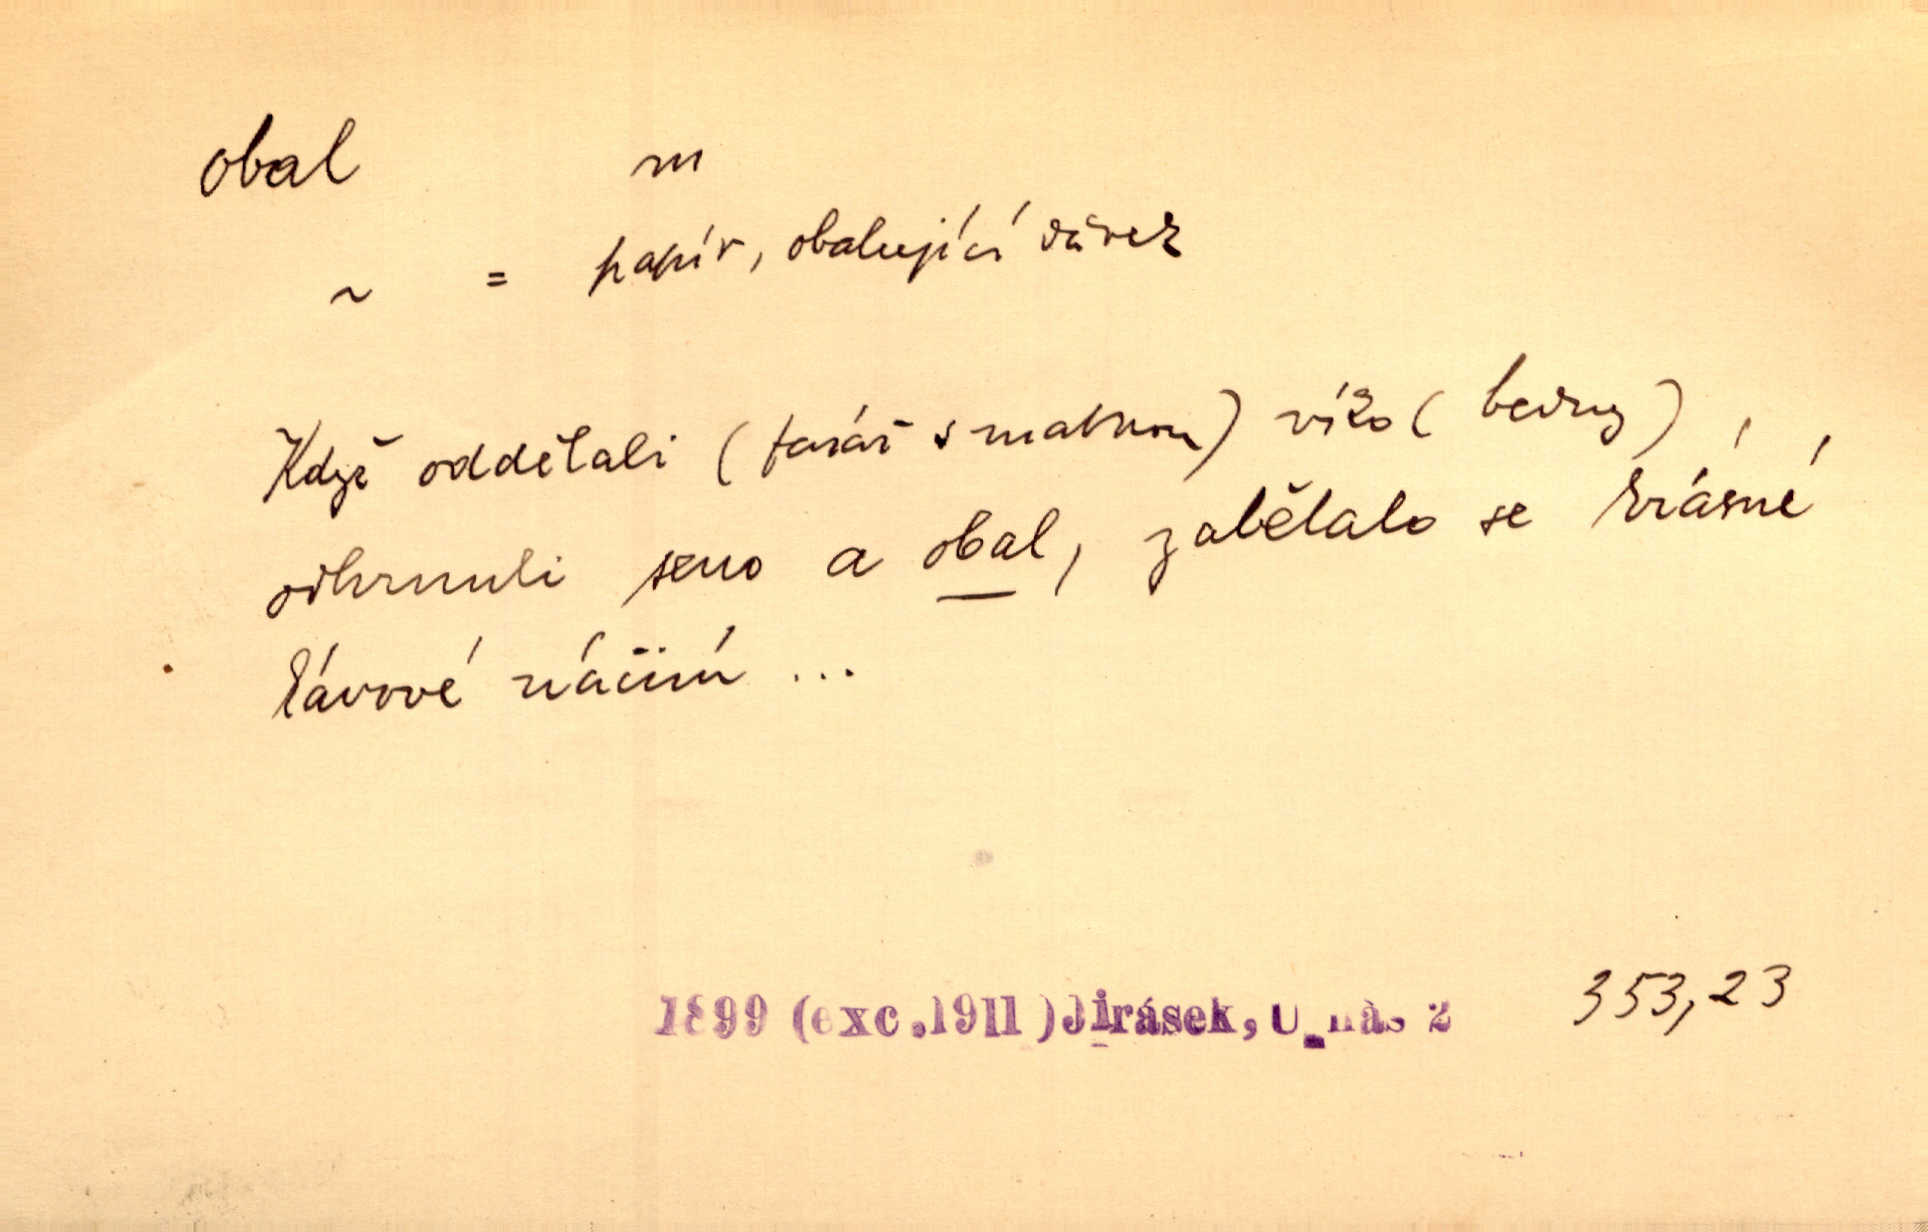 obal m
~ = papír, obalující dárek
Když oddělali (farář s matkou) víko (bedny),
odhrnuli seno a obal, zabělalo se krásné
kávové náčiní ...
1899 (exc.1911) Jirásek, U nás 2 353,23